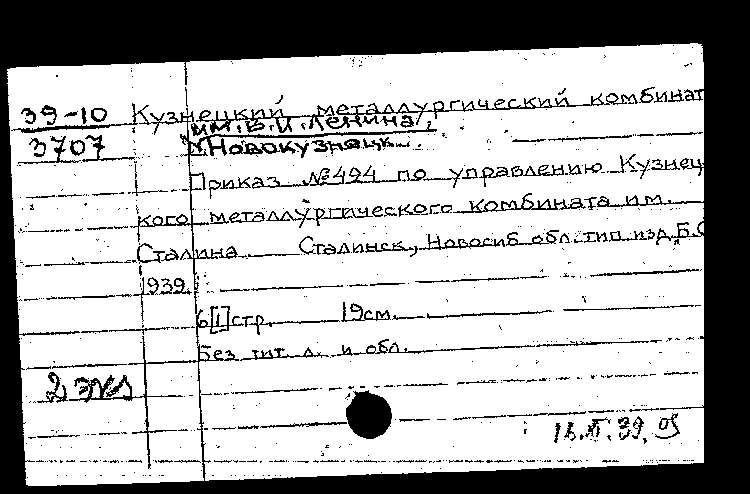 39-10 Кузнецкий металлургический комбинат
3707 им. В. И. Ленина,
Новокузнецк.
Приказ №494 по управлению Кузнец
кого металлургического комбината им.
Сталина Сталинск, Новосиб обл. тип изд. Б.С
1939.
6[1]стр. 19см.
Без тит. л. и обл.
2 экз
39.